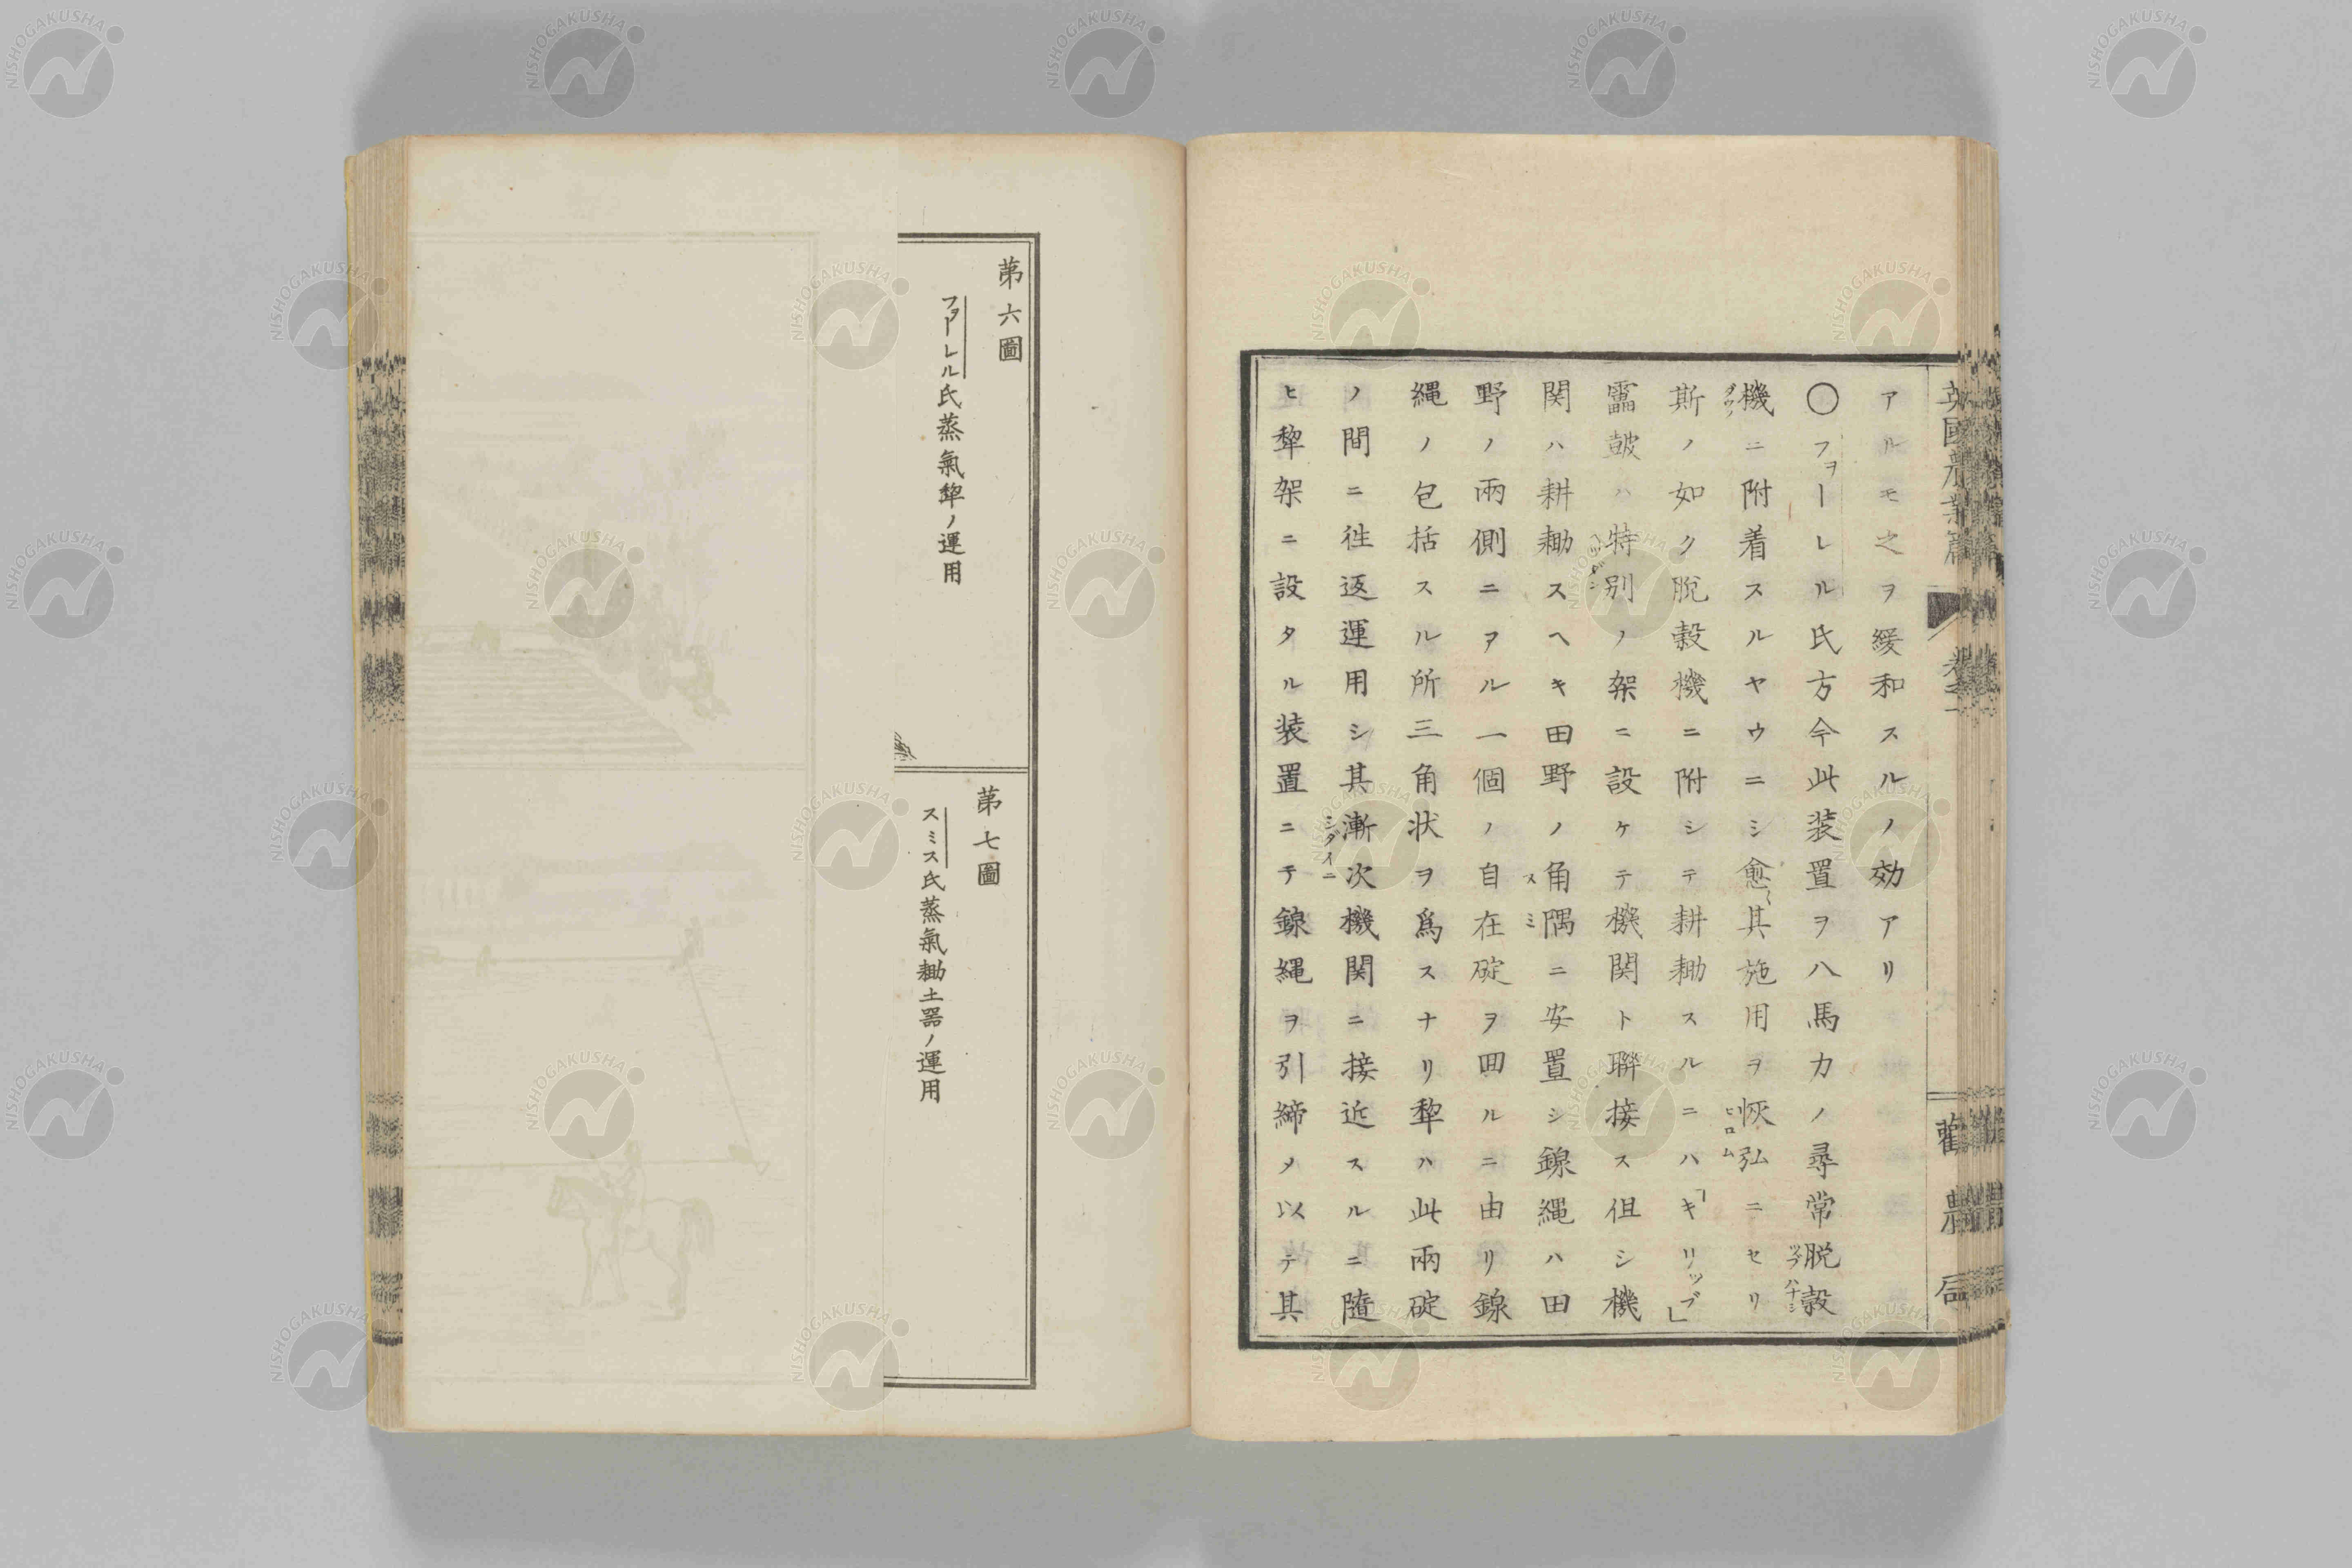 アルモ之ヲ緩和スルノ効アリ
〇フヲーレル氏方今此装置ヲ八馬力ノ尋常脱穀
機ニ附着スルヤウニシ愈〻其施用ヲ恢弘ニセリ
斯ノ如ク脱穀機ニ附シテ耕耡スルニハ「キリップ」
靁皷ハ特別ノ架ニ設ケテ機関ト聯接ス但シ機
関ハ耕耡スヘキ田野ノ角隅ニ安置シ鎳縄ハ田
野ノ兩側ニアル一個ノ自在碇ヲ囬ルニ由リ鎳
縄ノ包括スル所三角状ヲ爲スナリ犂ハ此兩碇
ノ間ニ徃返運用シ其漸次機関ニ接近スルニ隨
ヒ犂架ニ設タル装置ニテ鎳縄ヲ引締メ以テ其
英國農業篇 卷一 勸農局
第六圖
フヲーレル氏蒸氣犂ノ運用
第七圖
スミス氏蒸氣耡土器ノ運用
NISHOGAKUSHA